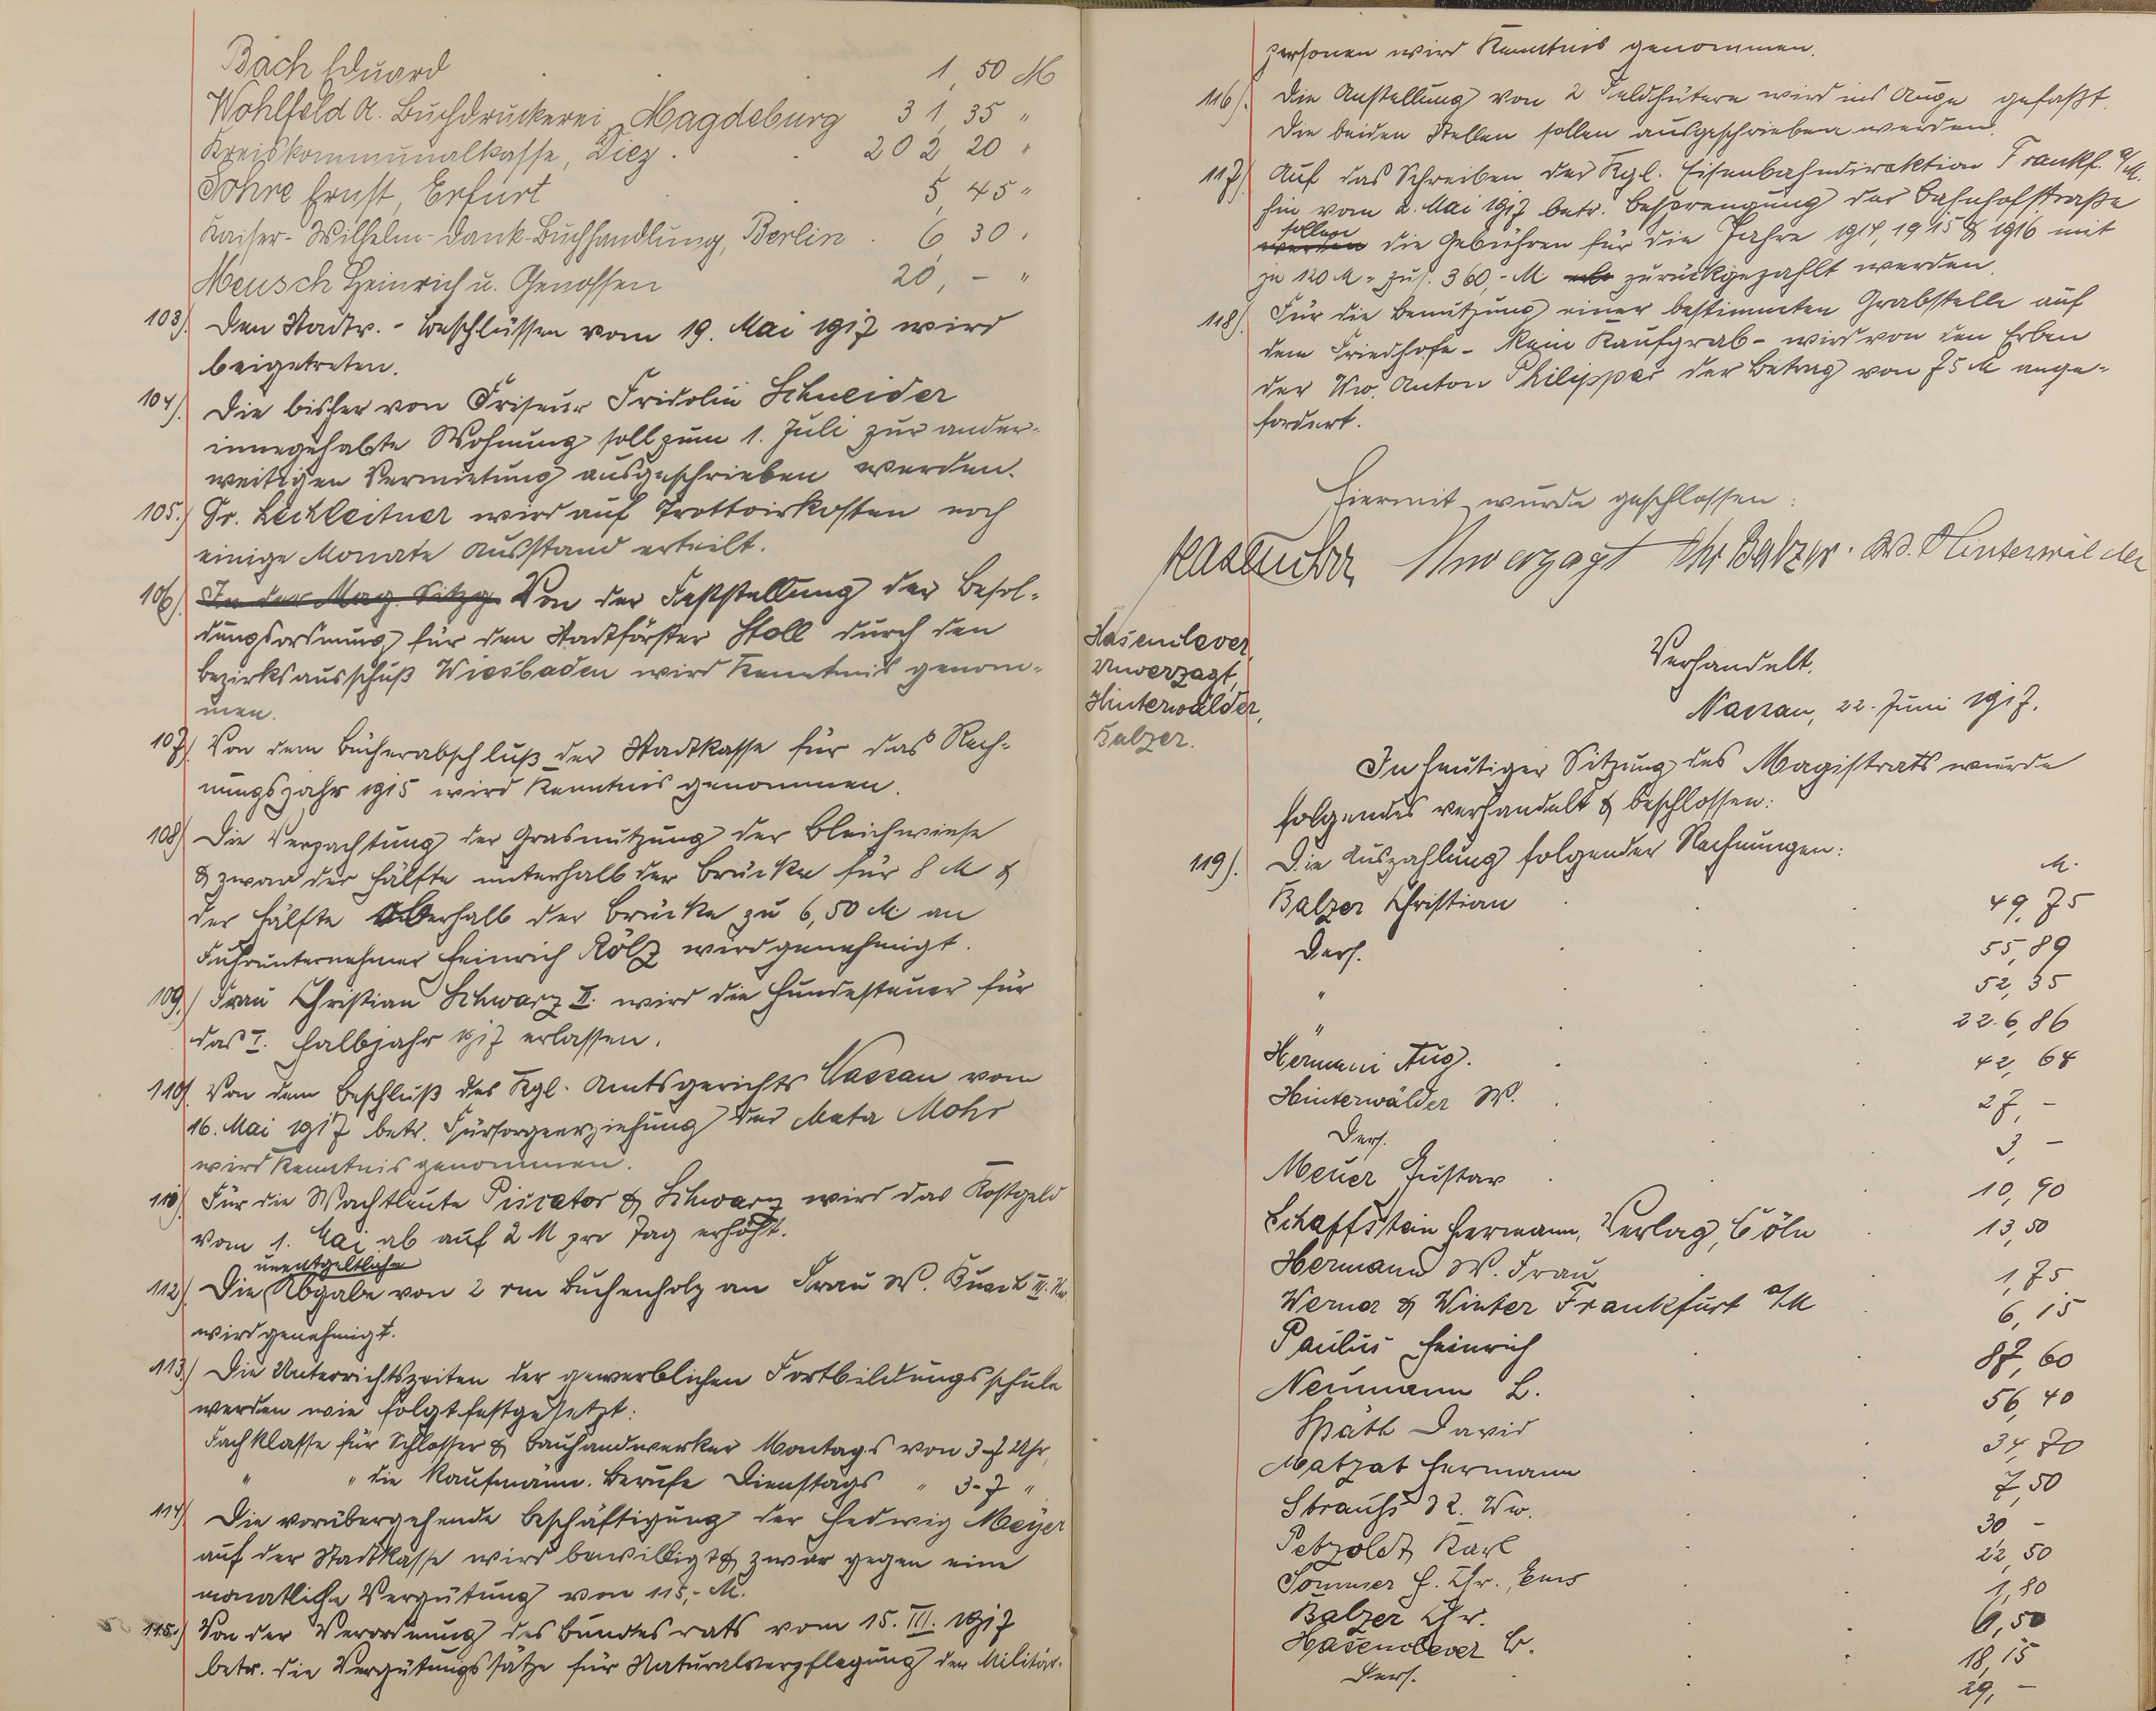 Bach Eduard 1,50 M
Wohlfeld A. Buchdruckerei Magdeburg 31,35 "
Kreiskommunalkasse, Diez. 202,20 "
Sohre Ernst, Erfurt 5,45 "
Kaiser-Wilhelm-Dank-Buchhandlung, Berlin. 6,30 "
Meusch Heinrich u. Genossen 20,- "
103). Den Stadtv.-Beschlüssen vom 19. Mai 1917 wird
beigetreten.
104). Die bisher von Friseur Fridolin Schneider
innegehabte Wohnung soll zum 1. Juli zur ander-
weitigen Vermietung ausgeschrieben werden.
105.) Fr. Lechleitner wird auf Trottoirkosten noch
einige Monate Ausstand erteilt.
106). In der Mag. Sitzg. Von der Feststellung der Besol-
dungsordnung für den Stadtförster Stoll durch den
Bezirksausschuß Wiesbaden wird Kenntnis genom-
men.
107). Von dem Bücherabschluß der Stadtkasse für das Rech-
nungsjahr 1915 wird Kenntnis genommen.
108) Die Verpachtung der Grasnutzung der Bleichwiese
& zwar der Hälfte unterhalb der Brücke für 8 M &
der Hälfte oberhalb der Brücke zu 6,50 M an
Fuhrunternehmer Heinrich Rölz wird genehmigt.
109.) Frau Christian Schwarz II. wird die Hundesteuer für
das I. Halbjahr 1917 erlassen.
110). Von dem Beschluß des Kgl. Amtsgerichts Nassau vom
16. Mai 1917 betr. Fürsorgeerziehung der Meta Mohr
wird Kenntnis genommen.
111). Für die Wachtleute Piscator & Schwarz wird das Kostgeld
vom 1. Mai ab auf 2 M pro Tag erhöht.
unentgeltliche
112). Die Abgabe von 2 rm Buchenholz an Frau W. Kusch III. Ww.
wird genehmigt.
113) Die Unterrichtszeiten der gewerblichen Fortbildungsschule
werden wie folgt festgesetzt:
Fachklasse für Schlosser & Bauhandwerker Montags von 3-7 Uhr,
" " die kaufmänn. Berufe Dienstags " 3-7 "
114) Die vorübergehende Beschäftigung der Hedwig Meyer
auf der Stadtkasse wird bewilligt & zwar gegen eine
monatliche Vergütung von 115,- M.
115.) Von der Verordnung des Bundesrats vom 15. III. 1917
betr. die Vergütungssätze für Naturalverpflegung der Militär-
personen wird Kenntnis genommen.
116). Die Anstellung von 2 Feldhütern wird ins Auge gefaßt.
Die beiden Stellen sollen ausgeschrieben werden.
117). Auf das Schreiben der Kgl. Eisenbahndirektion Frankf. a/M.
hin vom 2. Mai 1917 betr. Besprengung der Bahnhofstraße
sollen
werden die Gebühren für die Jahre 1914, 1915 & 1916 mit
je 120 M = zus. 360,- M zurückgezahlt werden.
118). Für die Benutzung einer bestimmten Grabstelle auf
dem Friedhofe - kein Kaufgrab - wird von den Erben
der Ww. Anton Philippar der Betrag von 75 M ange-
fordert.
Hiermit wurde geschlossen:
Hasenclever Unverzagt Chr Balzer. W. Hinterwälder
Hasenclever,
Unverzagt,
Hinterwälder,
Balzer.
Verhandelt.
Nassau, 22. Juni 1917.
In heutiger Sitzung des Magistrats wurde
folgendes verhandelt & beschlossen:
119). Die Auszahlung folgender Rechnungen:
M.
Balzer Christian 49,75
Ders. 55,89
" 52,35
" 226,86
Hermani Aug. 42,64
Hinterwälder W. 27,-
Ders. 3,-
Meuer Gustav 10,90
Schaffstein Hermann, Verlag, Cöln 13,50
Hermann W. Frau 1,75
Werner & Winter Frankfurt a/M 6,15
Paulus Heinrich 87,60
Neumann L. 56,40
Späth David 34,70
Matzat Hermann 7,50
Strauß R. Ww. 30,-
Petzoldt Karl 22,50
Sommer H. Chr., Ems 1,80
Balzer Chr. 6,50
Hasenclever C. 18,15
Ders. 29,-